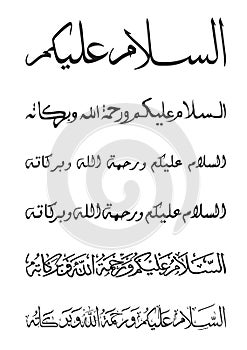 السلام عليكم
السلام عليكم ورحمة الله وبركاته
السلام عليكم ورحمة الله وبركاته
السلام عليكم ورحمة الله وبركاته
السَّلَامُ عَلَيْكُمْ وَرَحْمَةُ اللهِ وَبَرَكَاتُهُ
السَّلَامُ عَلَيْكُمْ وَرَحْمَةُ اللهِ وَبَرَكَاتُهُ